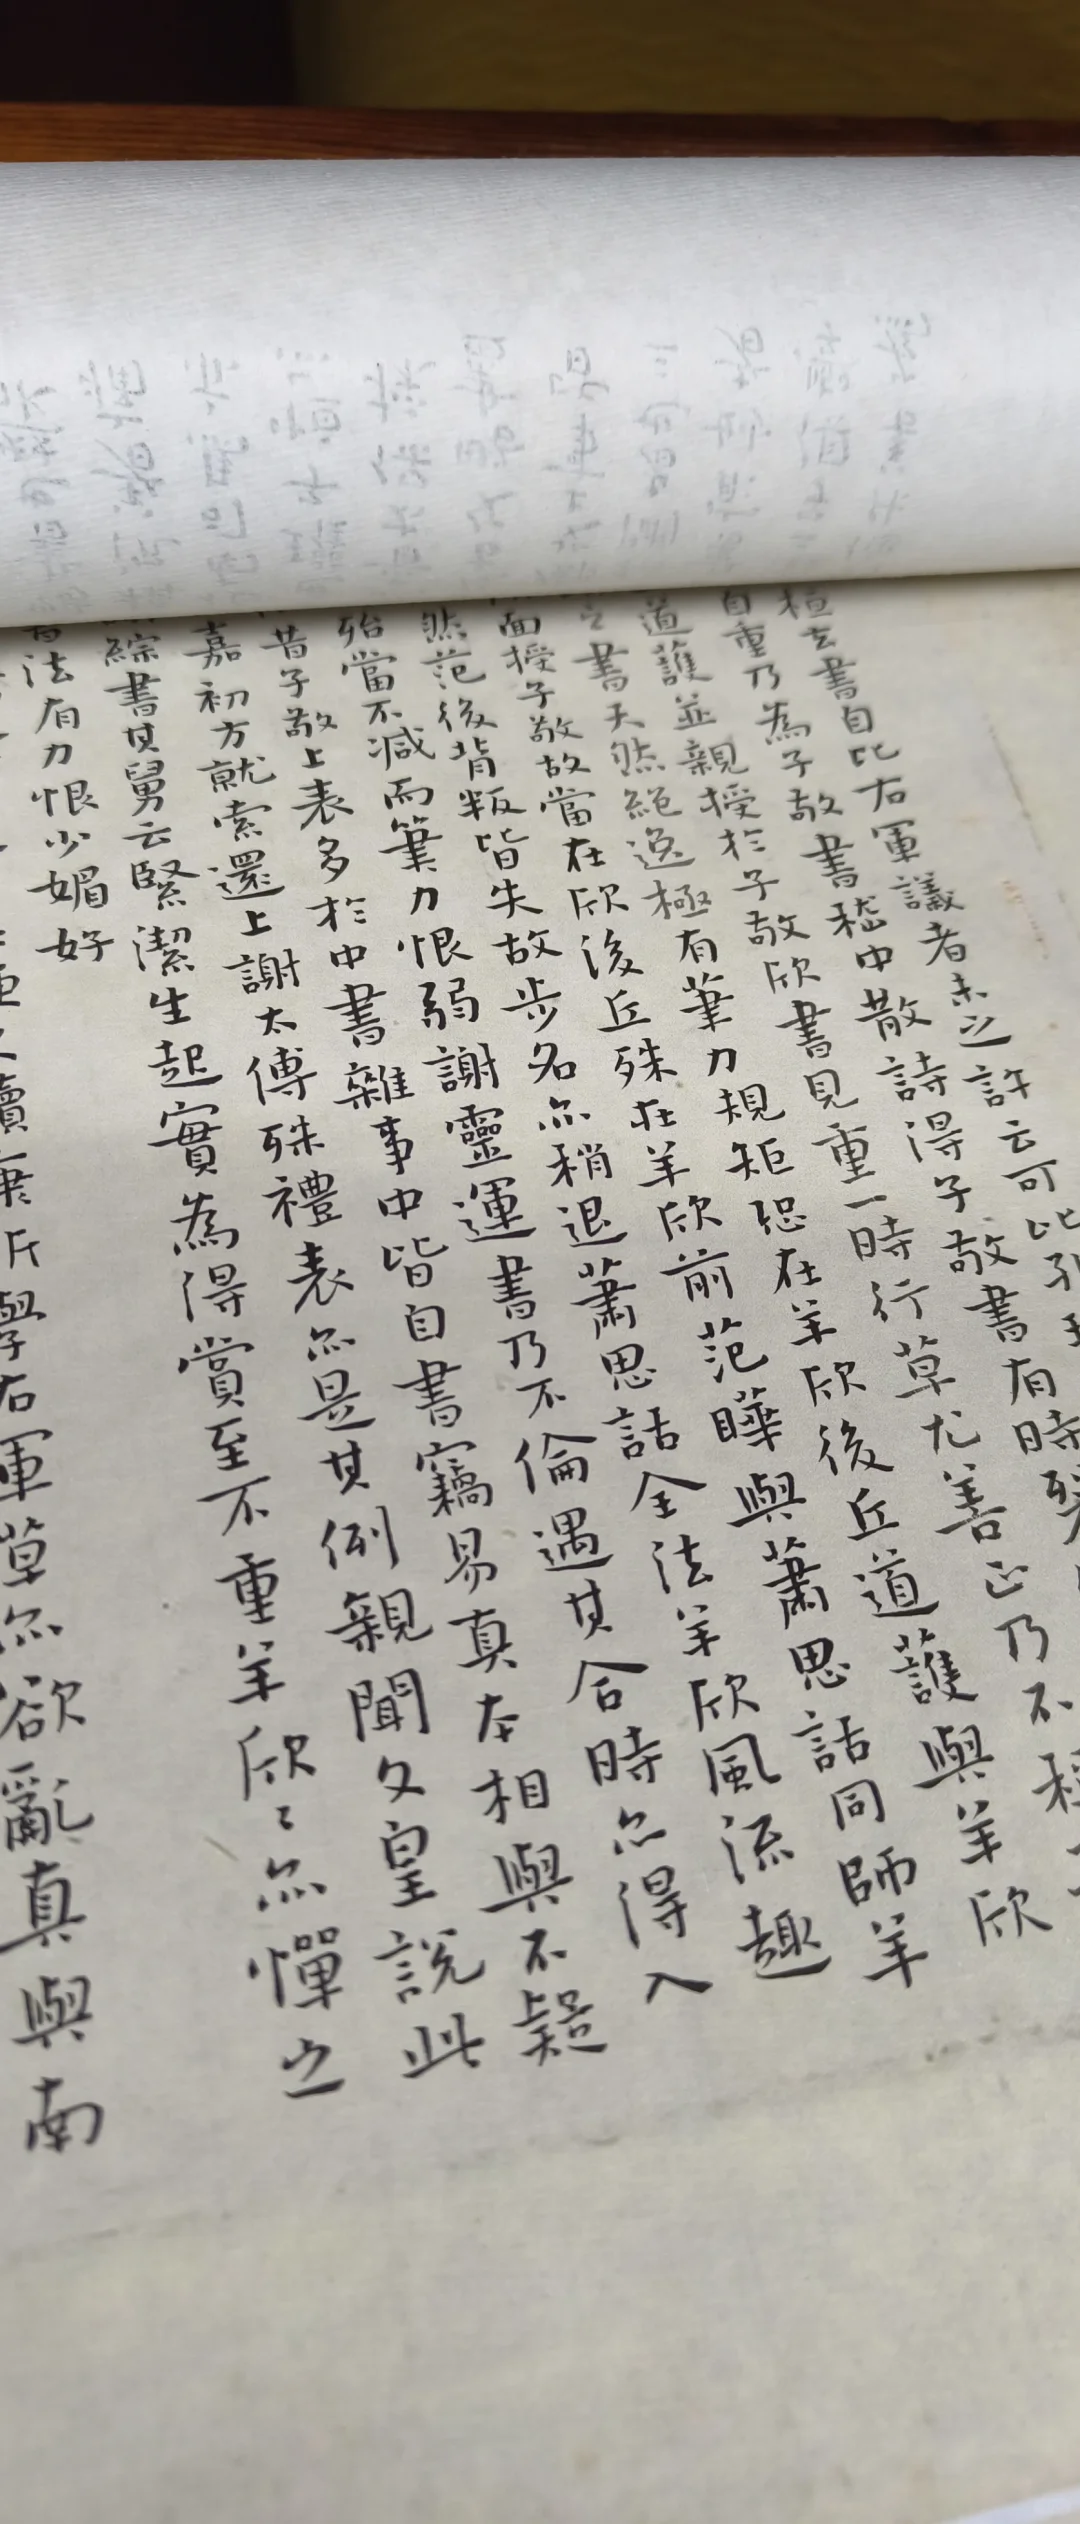 桓玄書自比右軍議者未之許云可比孔
自重乃為子敬書嵇中散詩得子敬書有時裂
道護並親授於子敬欣書見重一時行草尤善正乃不稱
之書天然絕逸極有筆力規矩恐在羊欣後丘道護與羊欣
面授子敬故當在欣後丘殊在羊欣前范曄與蕭思話同師羊
然范後背叛皆失故步名亦稍退蕭思話全法羊欣風流趣
殆當不減而筆力恨弱謝靈運書乃不倫遇其合時亦得入
昔子敬上表多於中書雜事中皆自書竊易真本相與不疑
嘉初方就索還上謝太傅殊禮表亦是其例親聞文皇說此
綜書其舅云緊潔生起實為得賞至不重羊欣〻亦憚之
法有力恨少媚好
學右軍草亦欲亂真與南